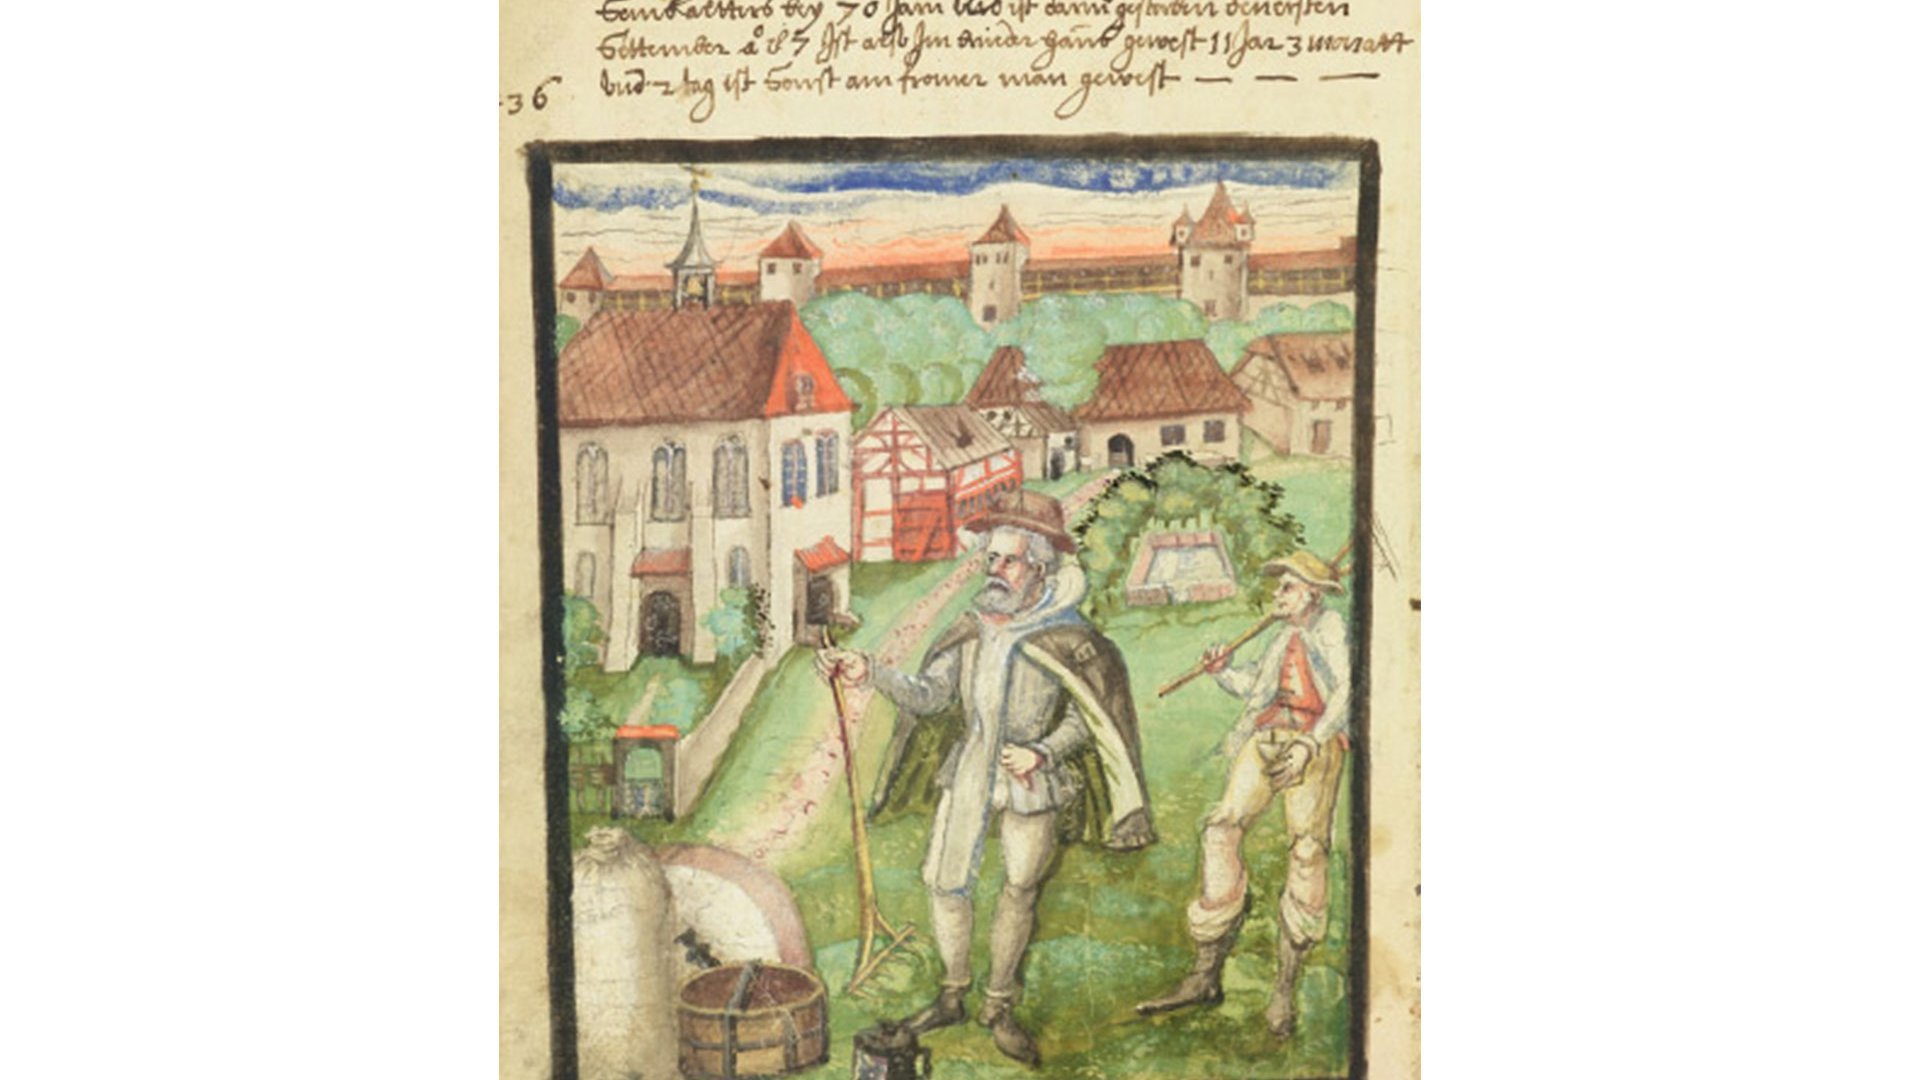 bey 70 Jarn ist dann gestorben den ersten
Settember a° 87 Ist also Im Brüder Hauß gewest 11 Jar 3 monatt
vnd 2 tag ist Sonst ain fromer man gewest — — —
36